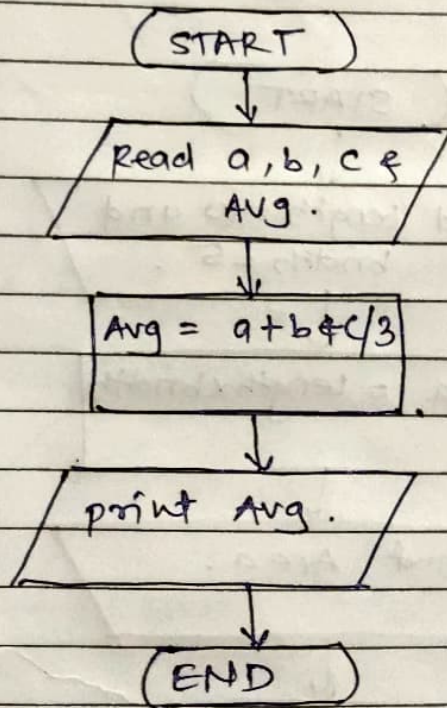 START
Read a, b, c &
Avg.
Avg = a+b+c/3
print Avg.
END